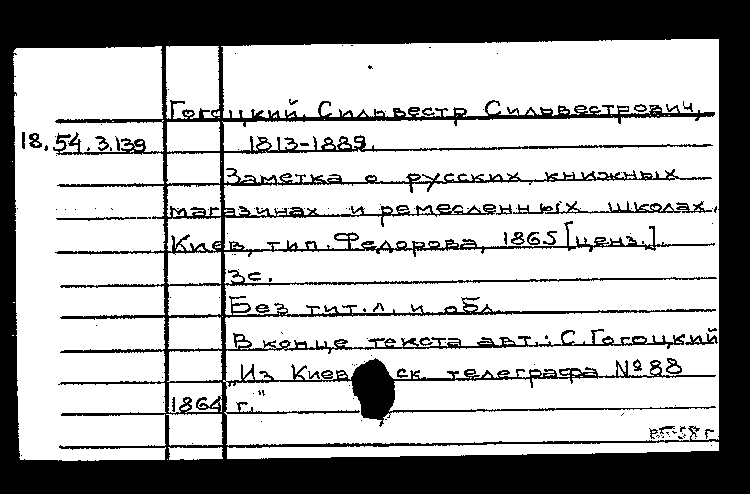 Гогоцкий, Сильвестр Сильвестрович,
18.54.3.139 1813-1889.
Заметка о русских книжных
магазинах и ремесленных школах.
Киев, тип. Федорова, 1865 [ценз.]
3с.
Без тит.л. и обл.
В конце текста авт.: С.Гогоцкий
"Из Киев ск. телеграфа №88
1864 г."